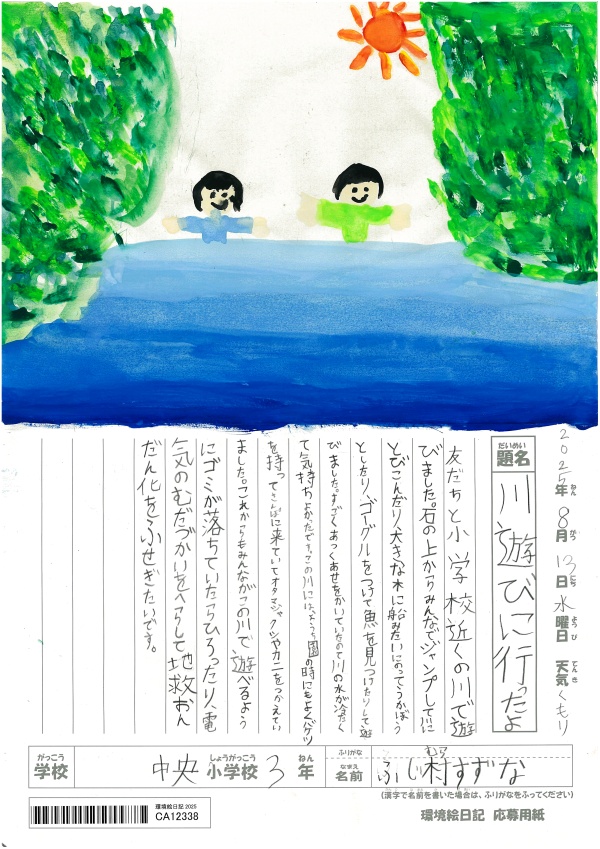 2025年 8月 13日 水曜日 天気 くもり
題名 川遊びに行ったよ
友だちと小学校近くの川で遊
びました。石の上からみんなでジャンプして川に
とびこんだり、大きな木に船みたいにのってうかぼう
としたり、ゴーグルをつけて魚を見つけたりして遊
びました。すごくあつくあせをかいていたので川の水が冷たく
て気持ちよかったです。この川には、ようち園の時にもよくバケツ
を持ってさんぽに来ていてオタマジャクシやカニをつかまえてい
ました。これからもみんながこの川で遊べるよう
にゴミが落ちていたらひろったり、電
気のむだづかいをへらして地救おん
だん化をふせぎたいです。
学校 中央 小学校 3年 名前 ふじ村すずな
(漢字で名前を書いた場合は、ふりがなをふってください)
環境絵日記 2025
CA12338
環境絵日記 応募用紙